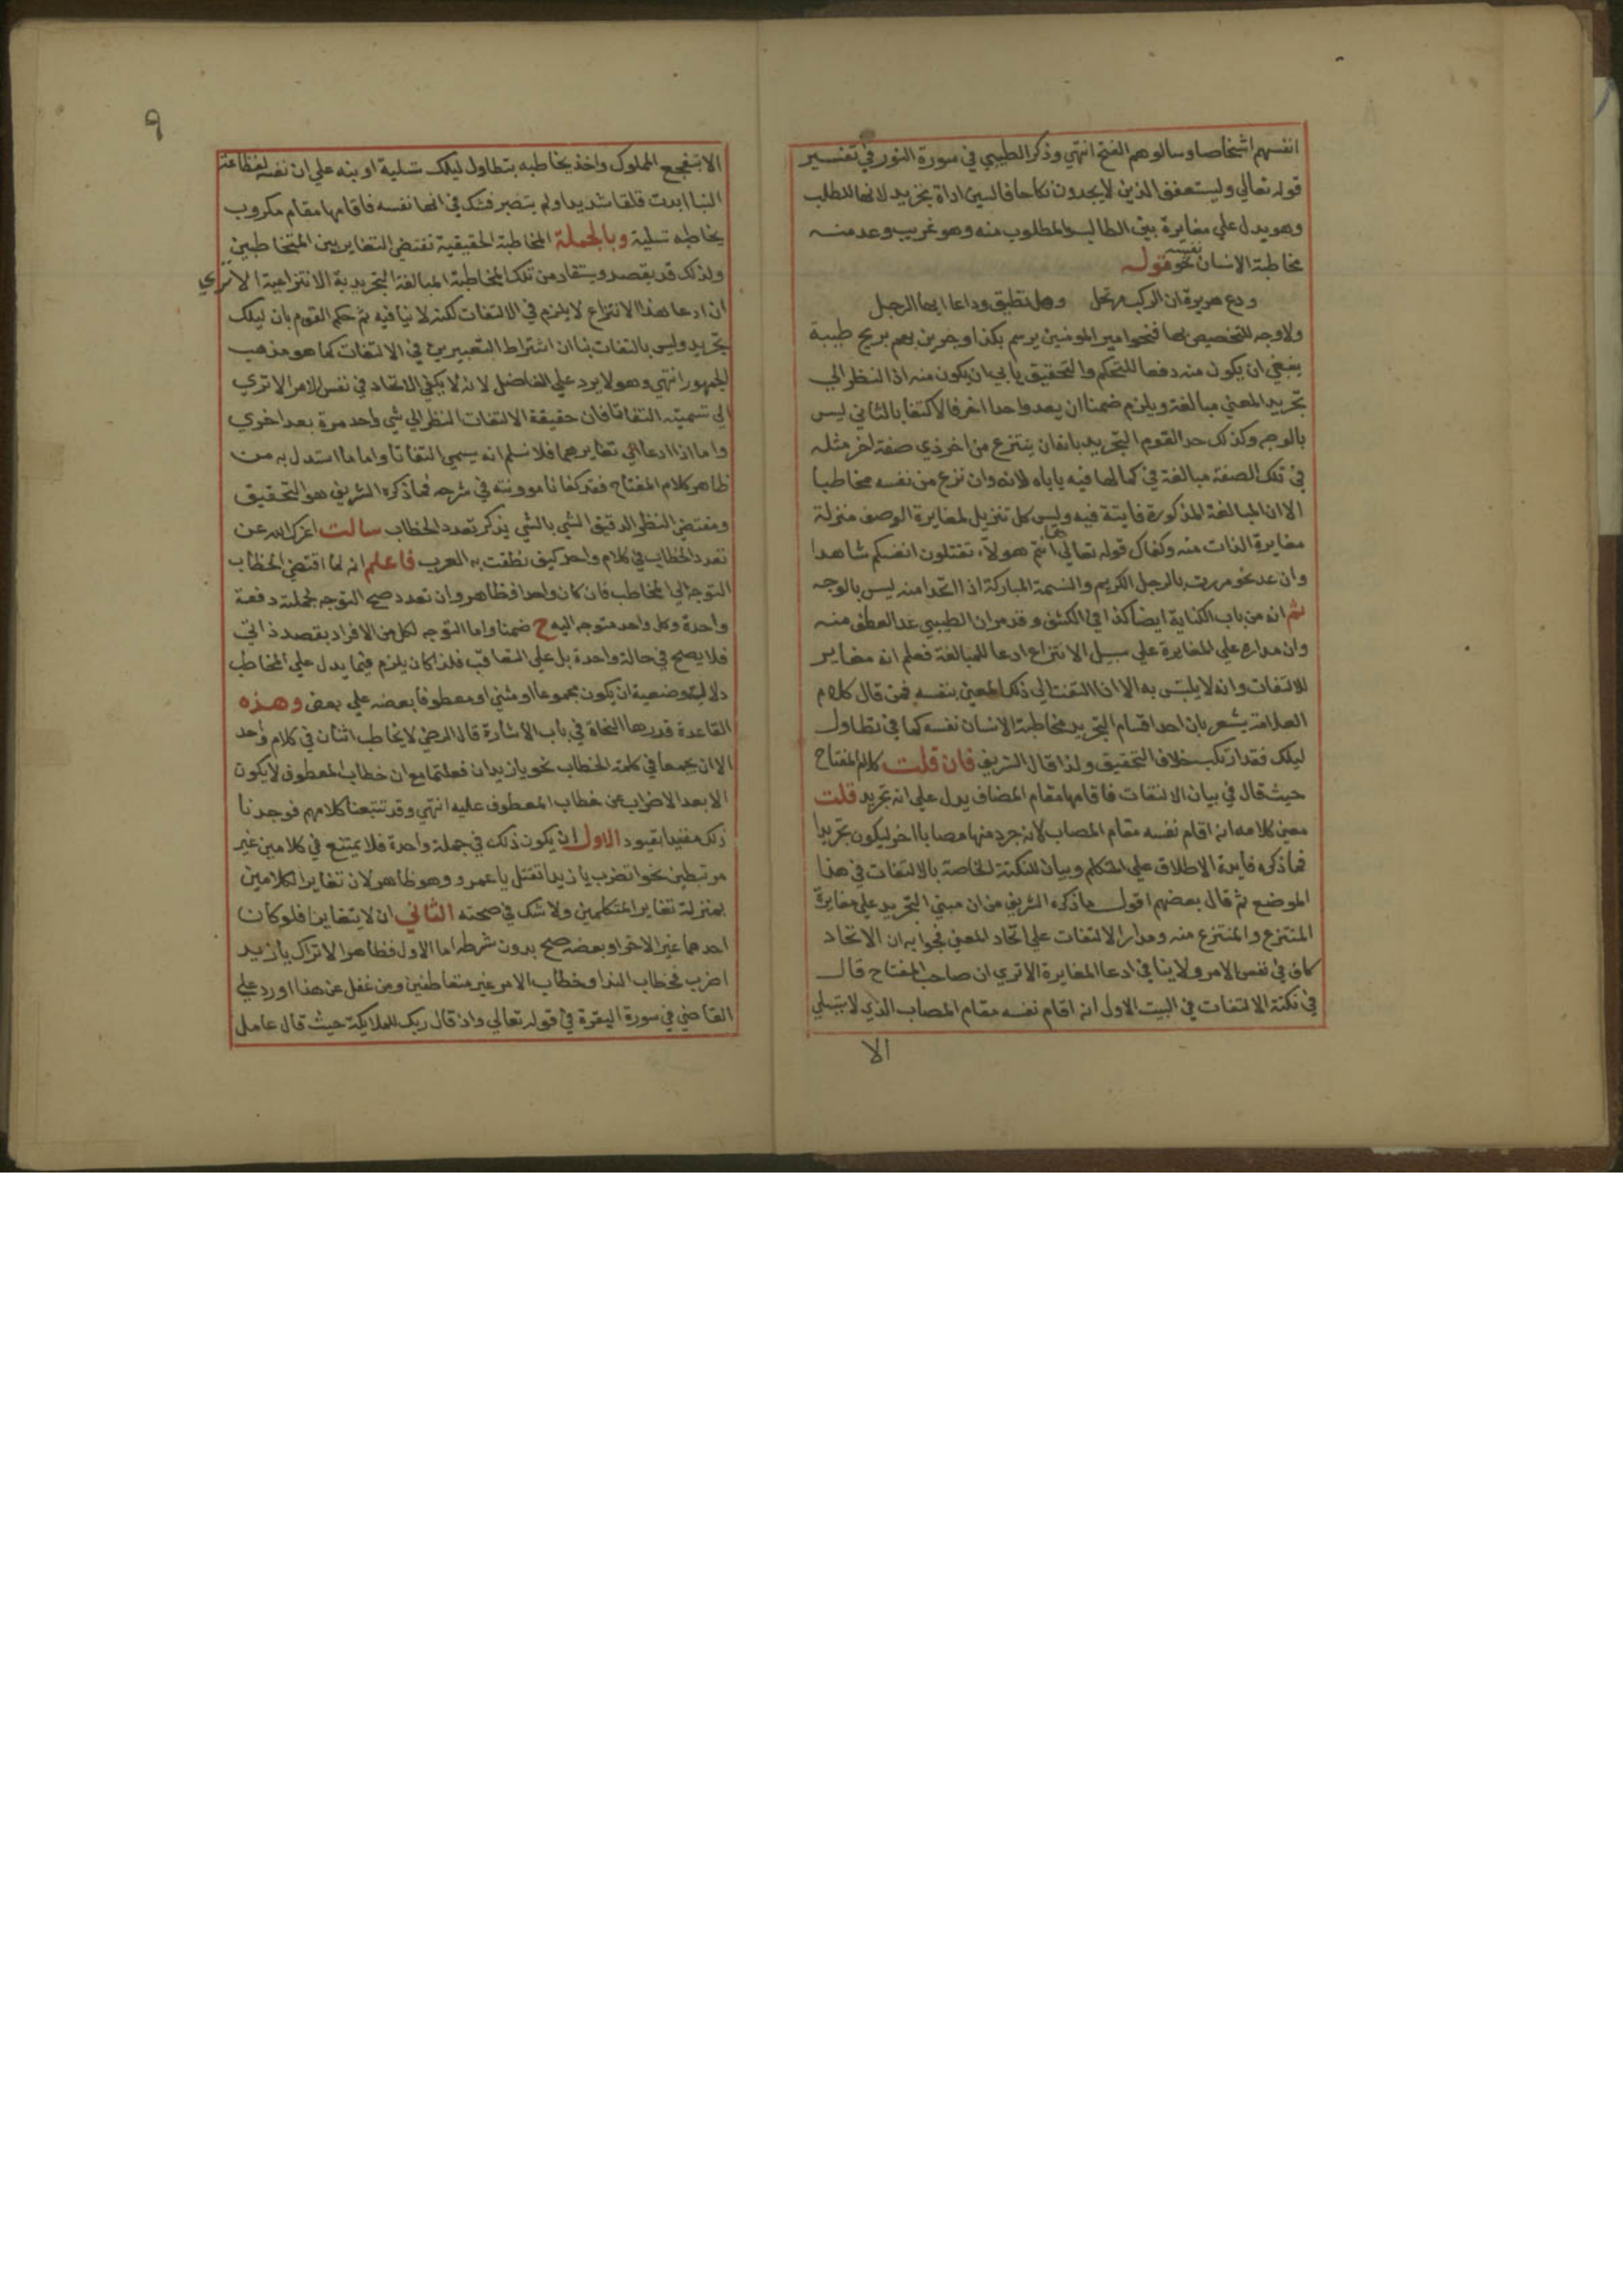 انفسهم اشخاصا وسالوهم الفتح انتهي وذكر الطيبي في سورة النور في تفسير
قوله تعالي وليستعفف الذين لا يجدون نكاحا فالسين اداة تجريد لانها للطلب
وهو يدل علي مغايرة بين الطالب والمطلوب منه وهو غريب وعد منه
مخاطبة الانسان نفسه نحو قوله
ودع هريرة ان الركب مرتحل وهل تطيق وداعا ايها الرجل
ولا وجه للتخصيص بها فنحو امير المومنين يرسم بكذا وبمرين بهم بريح طيبة
ينبغي ان يكون منه دفعا للتحكم والتحقيق يابي ان يكون منه اذ النظر الي
تجريد المعني مبالغة ويلزم ضمنا ان يعد واحدا اخر فالاكتفا بالثاني ليس
بالوجه وكذلك حد القوم التجريد بانه ان ينتزع من اخر ذي صفة اخر مثله
في تلك الصفة مبالغة في كمالها فيه ياباه لانه وان نزع من نفسه مخاطبا
الا ان المبالغة المذكورة فايتة فيه وليس كل تنزيل لمغايرة الوصف منزلة
مغايرة الذات منه وكفاك قوله تعالي ثم انتم هولاء تقتلون انفسكم شاهدا
وان عد نحو مررت بالرجل الكريم والنسمة المباركة اذا اتحدا منه ليس بالوجه
ثم انه من باب الكناية ايضا كذا في الكشف وقد مر ان الطيبي عد العطف منه
وان مداره علي المغايرة علي سبيل الانتزاع ادعا للمبالغة فعلم انه مغاير
للالتفات وانه لا يلتبس به الا اذا التفت الي ذلك المعني بنفسه فمن قال كلام
العلامة يشعر بان احد اقسام التجريد مخاطبة الانسان نفسه كما في تطاول
ليلك فقد ارتكب خلاف التحقيق ولذا قال الشريف فان قلت كلام المفتاح
حيث قال في بيان الالتفات فاقامها مقام المصاب يدل علي انه تجريد قلت
معني كلامه انه اقام نفسه مقام المصاب لا انه جرد منها مصابا اخر ليكون تجريدا
فما ذكره فايدة الاطلاق علي المتكلم وبيان للنكتة الخاصة بالالتفات في هذا
الموضع ثم قال بعضهم اقول ما ذكره الشريف من ان مبني التجريد علي مغايرة
المنتزع والمنتزع منه ومدار الالتفات علي اتحاد المعني فجوابه ان الاتحاد
كاف في نفس الامر ولا ينافي ادعا المغايرة الا تري ان صاحب المفتاح قال
في نكتة الالتفات في البيت الاول انه اقام نفسه مقام المصاب الذي لا يتسلي
الا
٩
الا بتفجع الملوك واخذ يخاطبه بتطاول ليلك تسلية او بنه علي ان نفسه لفظاعة
النبا ابدت قلقا شديدا ولم يتصبر فشك في انها نفسه فاقامها مقام مكروب
يخاطبه تسلية وبالجملة المخاطبة الحقيقية تقتضي التغاير بين المتخاطبين
ولذلك قد يقصد ويستفاد من تلك المخاطبة المبالغة التجريدية الانتزاعية الا تري
ان ادعا هذا الانتزاع لا يلزم في الالتفات لكنه لا ينافيه ثم حكم القوم بان ليلك
تجريد وليس بالتفات بنا ان اشتراط التعبيرين في الالتفات كما هو مذهب
الجمهور انتهي وهو لا يرد علي الفاضل لانه لا يكفي الاتحاد في نفس الامر الا تري
الي تسميته التفاتا فان حقيقة الالتفات النظر الي شي واحد مرة بعد اخري
واما اذا ادعا الي تغايرهما فلا نسلم انه يسمي التفاتا واما ما استدل به من
ظاهر كلام المفتاح فقد كفانا موونته في شرحه فما ذكره الشريف هو التحقيق
ومقتضي النظر الدقيق الشي بالشي يذكر تعدد الخطاب سالت اعزك الله عن
تعدد الخطاب في كلام واحد كيف نطقت به العرب فاعلم انه لما اقتضي الخطاب
التوجه الي المخاطب فان كان واحدا فظاهر وان تعدد صح التوجه لجملته دفعة
واحدة وكل واحد متوجه اليه ح ضمنا واما التوجه لكل من الافراد بقصد ذاتي
فلا يصح في حالة واحدة بل علي التعاقب فلذا كان يلزم فيما يدل علي المخاطب
دلالة وضعية ان يكون مجموعا او مثني او معطوفا بعضه علي بعض وهذه
القاعدة قدرها النحاة في باب الاشارة قال الرضي لا يخاطب اثنان في كلام واحد
الا ان يجمعا في كلمة الخطاب نحو يا زيدان فعلتما مع ان خطاب المعطوف لا يكون
الا بعد الاضراب عن خطاب المعطوف عليه انتهي وقد تتبعنا كلامهم فوجدنا
ذلك مقيدا بقيود الاول ان يكون ذلك في جملة واحدة فلا يمتنع في كلامين غير
مرتبطين نحو اتضرب يا زيد اتقتل يا عمرو وهو ظاهر لان تغاير الكلامين
بمنزلة تغاير المتكلمين ولا شك في صحته الثاني ان لا يتغايرا فلو كان
احدهما غير الاخر او بعضه صح بدون شرطه اما الاول فظاهر الا تراك يا زيد
اضرب فخطاب الندا وخطاب الامر غير متعاطفين ومن غفل عن هذا اورد علي
القاضي في سورة البقرة في قوله تعالي واذ قال ربك للملايكة حيث قال عامل